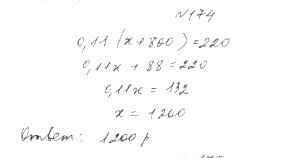 №174
0,11(x+800)=220
0,11x+88=220
0,11x=132
x=1200
Ответ: 1200 р